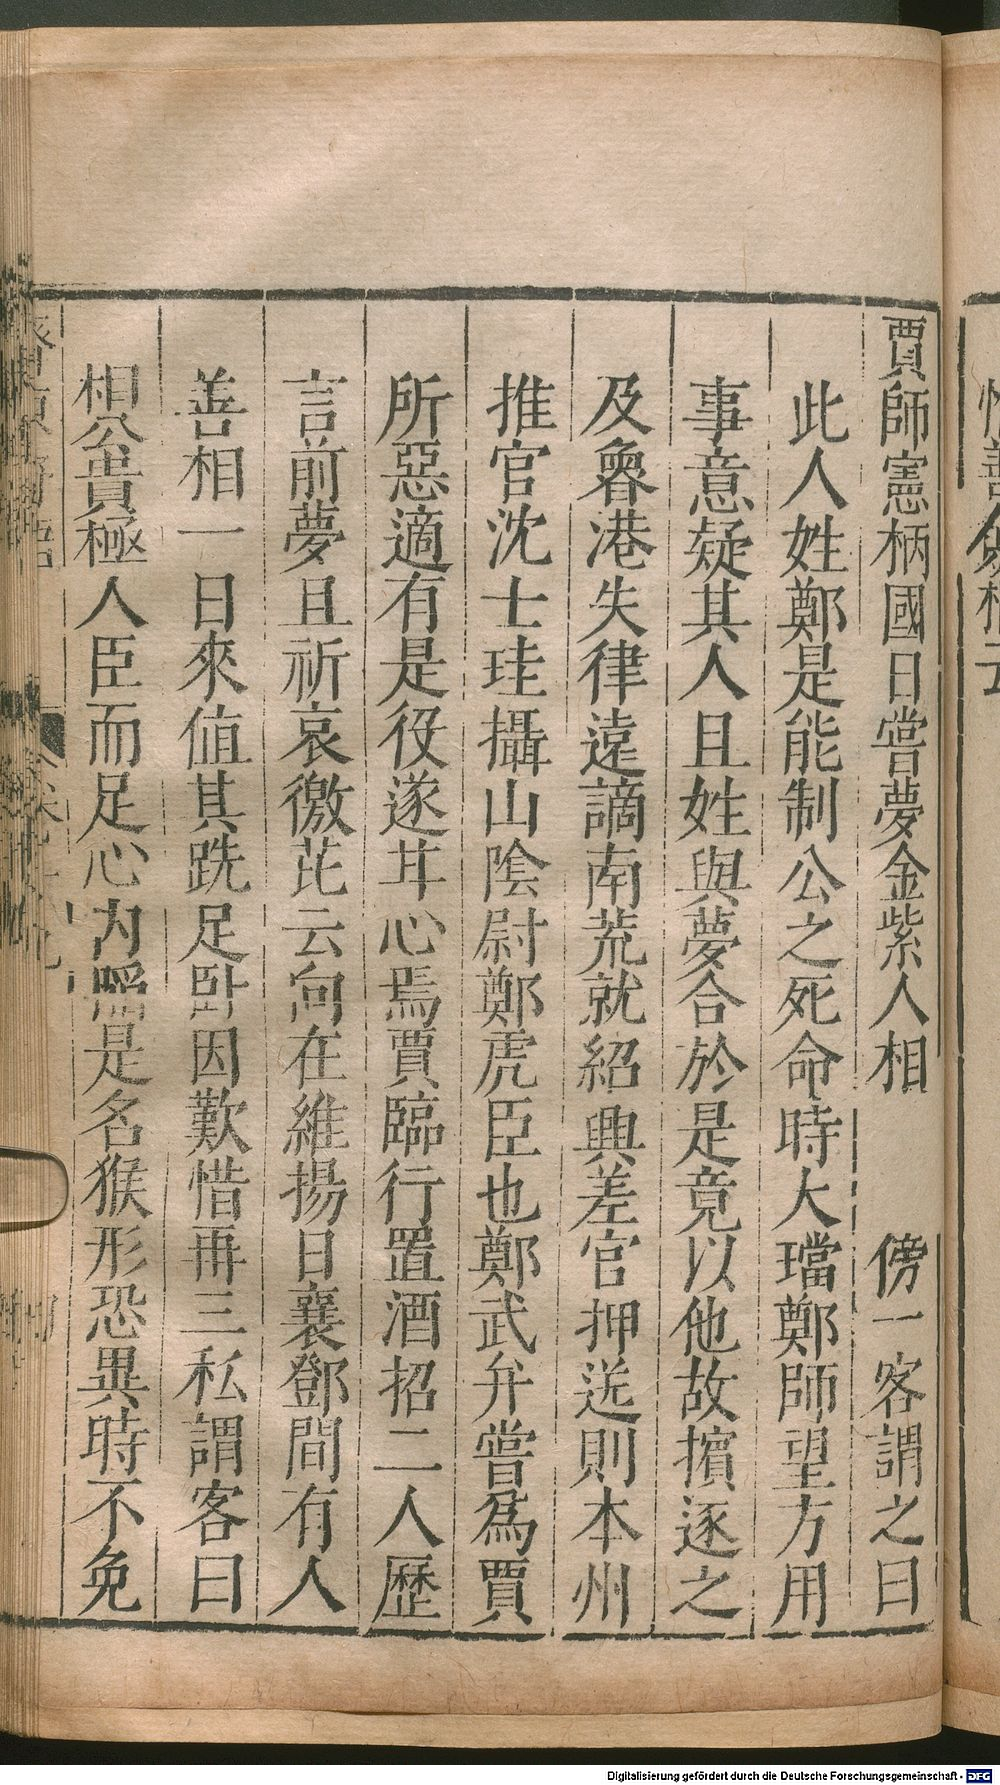 賈師憲柄國日嘗夢金紫人相　　傍一客謂之曰
此人姓鄭是能制公之死命時大璫鄭師望方用
事意疑其人且姓與夢合於是竟以他故擯逐之
及魯港失律遠謫南荒就紹興差官押送則本州
推官沈士珪攝山陰尉鄭虎臣也鄭武弁嘗爲賈
所惡適有是役遂甘心焉賈臨行置酒招二人歷
言前夢且祈哀徼芘云向在維揚日襄鄧間有人
善相一日來值其跣足卧因歎惜再三私謂客曰
相公貴極人臣而足心内陷是名猴形恐異時不免
Digitalisierung gefördert durch die Deutsche Forschungsgemeinschaft - DFG